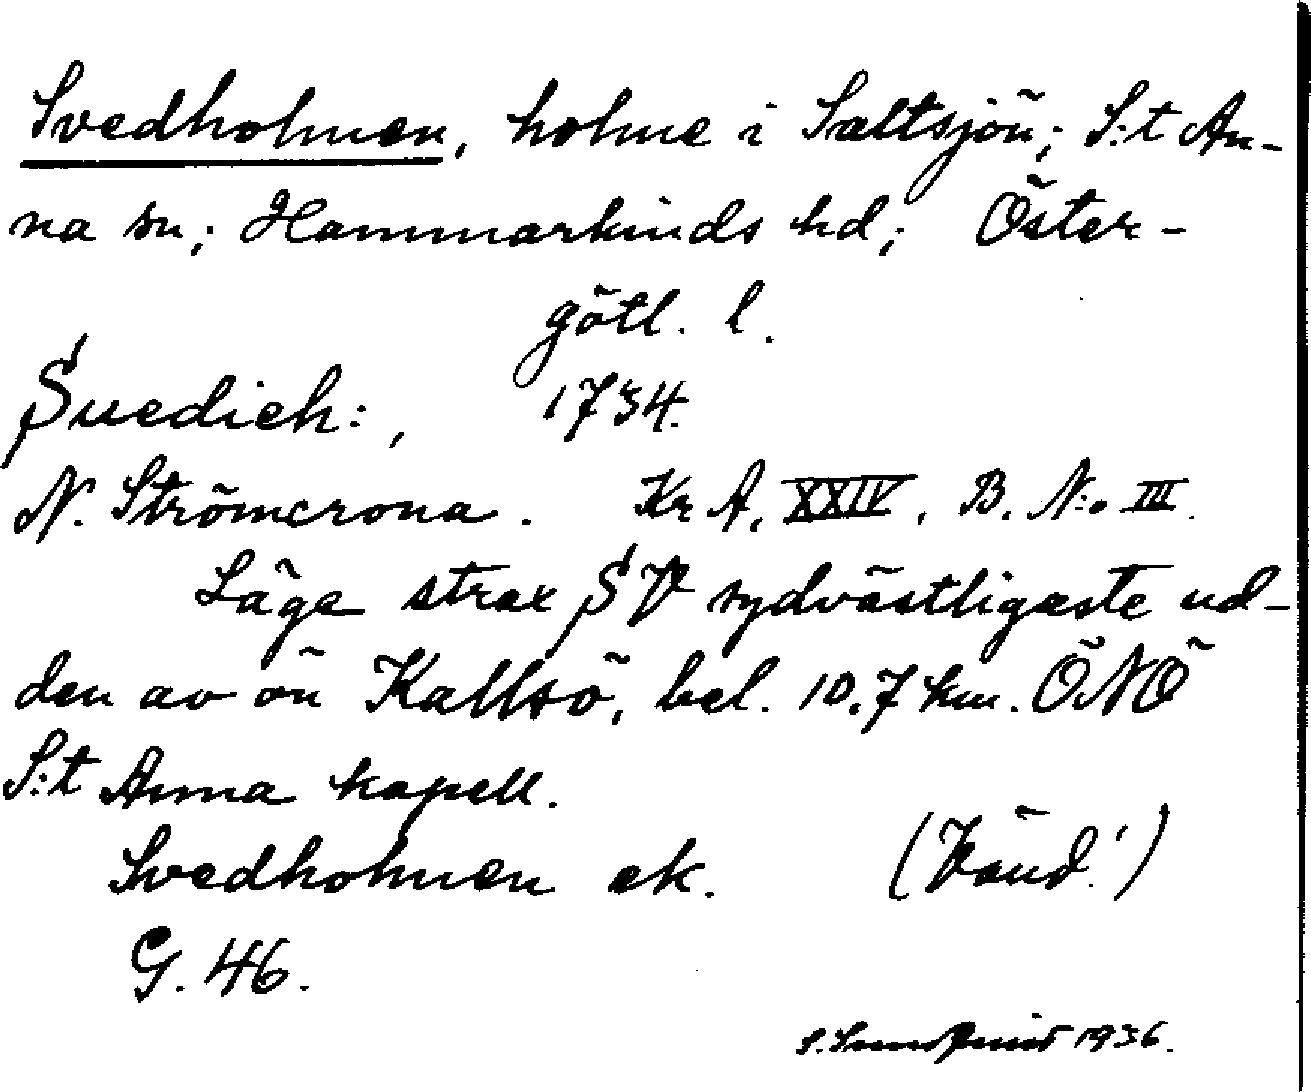 Svedholmen, holme i Saltsjön; S:t An-
na sn; Hammarkinds hd; Öster-
götl. l.
Suedieh:, 1734.
N. Strömcrona. Kr A, XXIV. B. N:o III.
Läge strax SV sydvästligaste ud-
den av ön Kallsö, bel. 10.7 km. ÖNÖ
S:t Anna kapell.
Svedholmen ek. (Vänd!)
G. 46.
S. Sundqvist 1936.